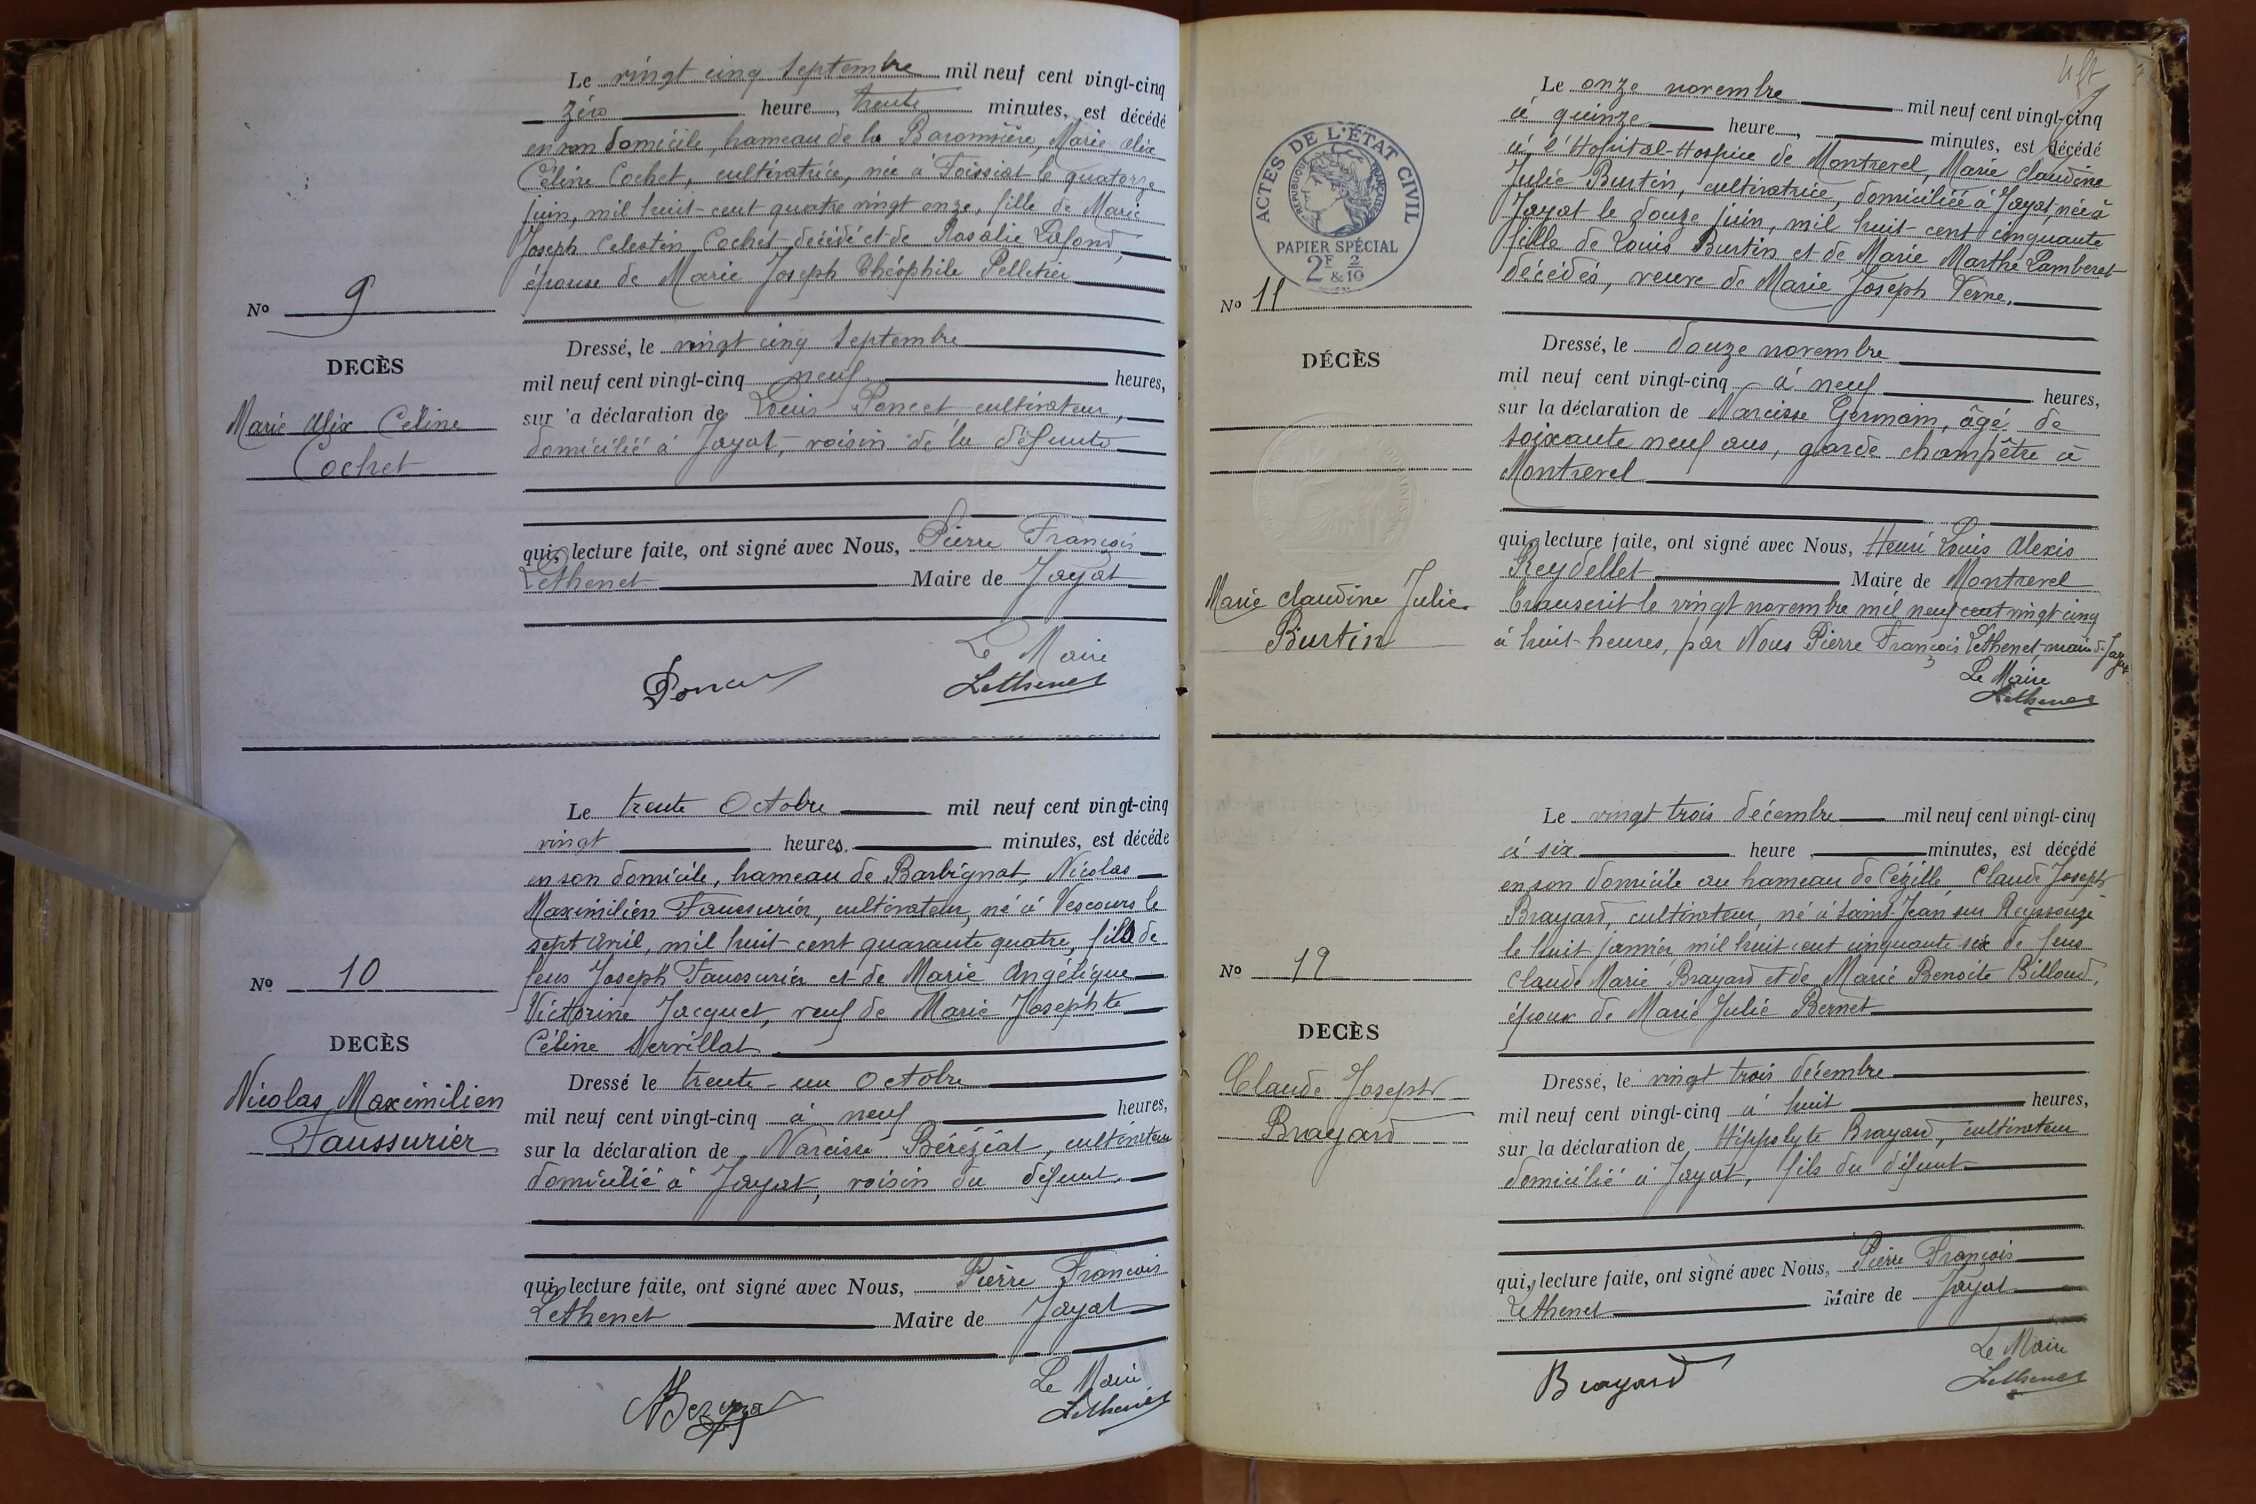 Le vingt cinq Septembre mil neuf cent vingt-cinq
zéro heure, trente minutes, est décédé
en son domicile, hameau de la Baronnière, Marie Alix
Céline Cochet, cultivatrice, née à Foissiat le quatorze
juin, mil huit-cent quatre vingt onze, fille de Marie
Joseph Celestin Cochet décédé et de Rosalie Lafond,
épouse de Marie Joseph Théophile Pelletier
No 9
DECÈS
Marie Alix Céline
Cochet
Dressé, le vingt cinq Septembre
mil neuf cent vingt-cinq neuf heures,
sur a déclaration de Louis Poncet cultivateur,
domicilié à Jayat, voisin de la défunte
qui, lecture faite, ont signé avec Nous, Pierre François
Lethenet Maire de Jayat
Le Maire
Poncet
Lethenet
Le trente Octobre mil neuf cent vingt-cinq
vingt heures, minutes, est décédé
en son domicile, hameau de Barbignat, Nicolas
Maximilien Faussurier, cultivateur, né à Vescours le
sept avril, mil huit-cent quarante quatre, fils de
feus Joseph Faussurier et de Marie Angélique
Victorine Jacquet, veuf de Marie Josephte
Céline Nervillat
No 10
DECÈS
Nicolas Maximilien
Faussurier
Dressé le trente-un Octobre
mil neuf cent vingt-cinq à neuf heures,
sur la déclaration de Narcisse Béréziat, cultivateur
domicilié à Jayat, voisin du défunt.
qui, lecture faite, ont signé avec Nous, Pierre François
Lethenet Maire de Jayat
Le Maire
Lethenet
Le onze novembre mil neuf cent vingt-cinq
à quinze heure, minutes, est décédé
à l'Hopital-Hospice de Montrevel, Marie Claudine
Julie Burtin, cultivatrice, domiciliée à Jayat née à
Jayat le douze juin, mil huit-cent cinquante
fille de Louis Burtin et de Marie Marthe Lamberet
décédés, veuve de Marie Joseph Verne.
ACTES DE L'ÉTAT CIVIL
RÉPUBLIQUE FRANÇAISE
PAPIER SPÉCIAL
2F & 2/10
No 11
DÉCÈS
Marie Claudine Julie
Burtin
Dressé, le douze novembre
mil neuf cent vingt-cinq à neuf heures,
sur la déclaration de Narcisse Germain, âgé de
soixante neuf ans, garde champêtre à
Montrevel
qui, lecture faite, ont signé avec Nous, Henri Louis Alexis
Reydellet Maire de Montrevel
Transcrit le vingt novembre mil neuf cent vingt cinq
à huit-heures, par Nous Pierre François Lethenet, maire de Jayat
Le Maire
Lethenet
Le vingt trois décembre mil neuf cent vingt-cinq
à six heure, minutes, est décédé
en son domicile au hameau de Cézille Claude Joseph
Brayard, cultivateur, né à Saint-Jean sur Reyssouze
le huit janvier mil huit cent cinquante six de feus
Claude Marie Brayard et de Marie Benoite Billoud,
époux de Marie Julie Bernet
No 12
DECÈS
Claude Joseph
Brayard
Dressé, le vingt trois décembre
mil neuf cent vingt-cinq à huit heures,
sur la déclaration de Hippolyte Brayard, cultivateur
domicilié à Jayat, fils du défunt
qui, lecture faite, ont signé avec Nous, Pierre François
Lethenet Maire de Jayat
Le Maire
Brayard
Lethenet